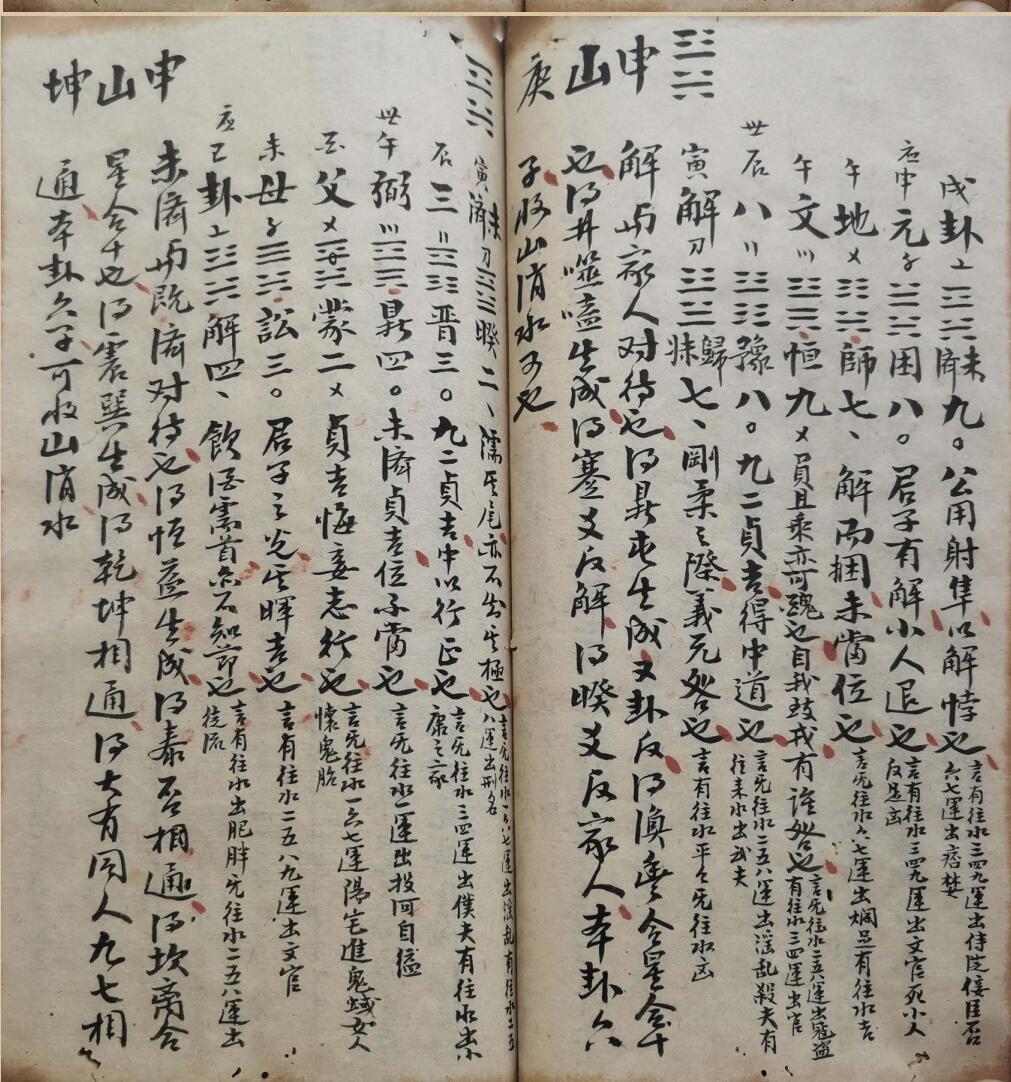 戌卦上未濟九。公用射隼以解悖也言有往水三四九運出侍從佞臣否六七運出痞
应申元子困八。君子有解小人退也言有往水三四九運出文官死小人反是凶
午地乂師七、解而拇未當位也言旡往水六七運出爛足有往水吉
午文〢恒九乂負且乘亦可醜也自我致戎有誰咎也言旡往水二五八運出寇盜有往水三四運出官
世辰八〢豫八。九二貞吉得中道也言旡往水二五八運出淫乱殺夫有往来水出武夫
寅解刀歸妹七、剛柔之際義无咎也言有往水平之旡往水凶
解与家人对待也得鼎屯生成又卦反得渙豐合星合十
也得井噬嗑生成得蹇爻反解得暌爻反家人本卦六
子收山消水可也
申山庚
寅未濟刀暌二、濡其尾亦不知其極也言旡往水一六八七運出淫乱有往水二五八運出刑名
辰三〢晋三。九二貞吉中以行正也言旡往水三四運出僕夫有往水出小康之家
世午弼〣鼎四。未濟貞吉位不當也言旡往水一運出投河自縊
父乂蒙二乂貞吉悔亡志行也言旡往水一六七運陽宅進鬼女人懷鬼胎
未母子訟三。君子之光其暉吉也言有往水二五八九運出文官
应巳卦上解四、飲酒濡首亦不知節也言有往水出肥胖旡往水二五八運出徒流
未濟与既濟对待也得恒益生成得泰否相通得坎离合
星合十也得震巽生成得乾坤相通得大有同人九七相
通本卦六子可收山消水
申山坤